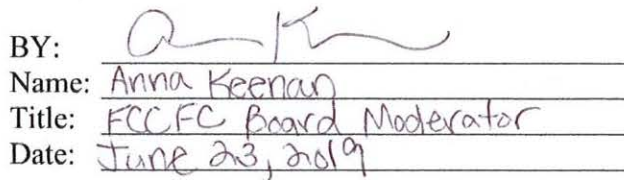 BY:
Name: Anna Keenan
Title: FCCFC Board Moderator
Date: June 23, 2019